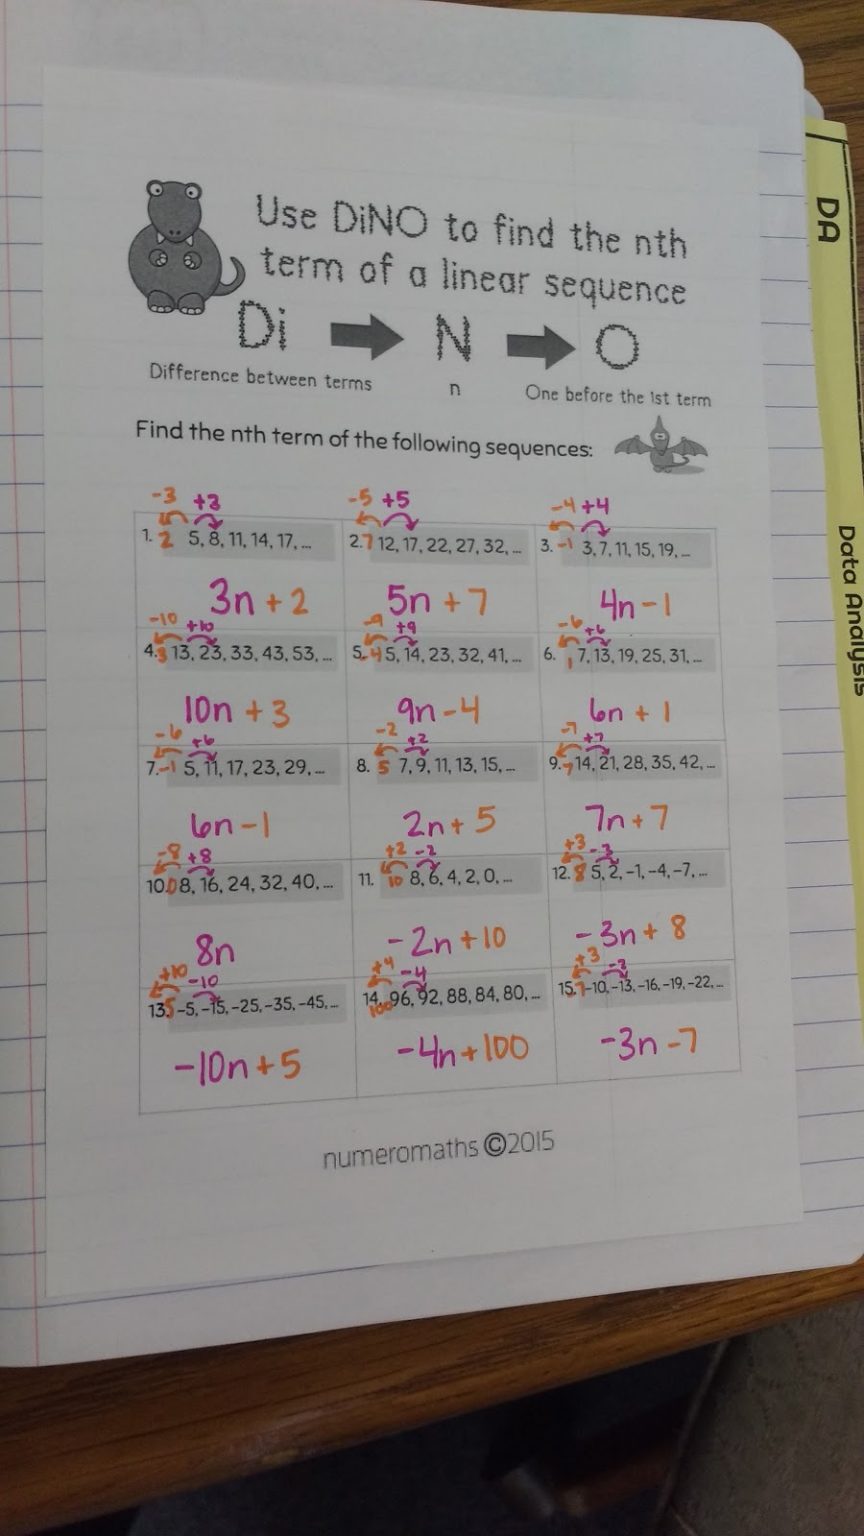 Use DiNO to find the nth
term of a linear sequence
Di N O
Difference between terms n One before the 1st term
Find the nth term of the following sequences:
-3 +3 -5 +5 -4 +4
1. 2 5, 8, 11, 14, 17, ... 2. 7 12, 17, 22, 27, 32, ... 3. -1 3, 7, 11, 15, 19, ...
3n + 2 5n + 7 4n - 1
-10 +10 -9 +9 -6 +6
4. 3 13, 23, 33, 43, 53, ... 5. -4 5, 14, 23, 32, 41, ... 6. 1 7, 13, 19, 25, 31, ...
10n + 3 9n - 4 6n + 1
-6 +6 -2 +2 -7 +7
7. -1 5, 11, 17, 23, 29, ... 8. 5 7, 9, 11, 13, 15, ... 9. 7 14, 21, 28, 35, 42, ...
6n - 1 2n + 5 7n + 7
-8 +8 +2 -2 +3 -3
10. 0 8, 16, 24, 32, 40, ... 11. 10 8, 6, 4, 2, 0, ... 12. 8 5, 2, -1, -4, -7, ...
8n -2n + 10 -3n + 8
+10 -10 +4 -4 +3 -3
13. 5 -5, -15, -25, -35, -45, ... 14. 100 96, 92, 88, 84, 80, ... 15. -7 -10, -13, -16, -19, -22, ...
-10n + 5 -4n + 100 -3n - 7
numeromaths ©2015
DA
Data Analysis